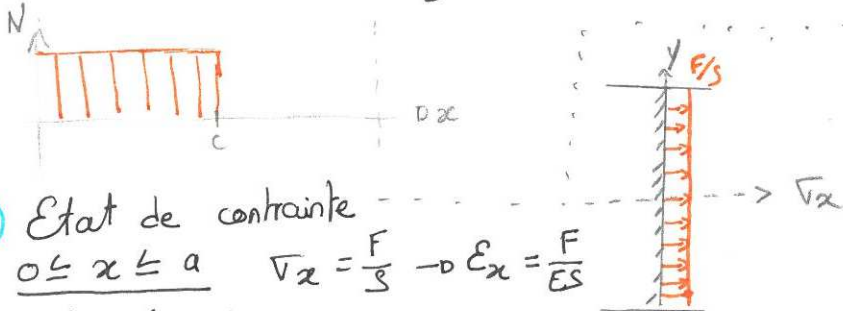 N
y F/S
x
c
σx
Etat de contrainte
0 ≤ x ≤ a σx = F/S → Ɛx = F/ES